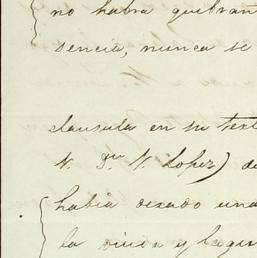 no habra quebran
sencia, nunca se
clausula en su text
N. Dn. N. Lopez) de
habia dexado una
la viuda y